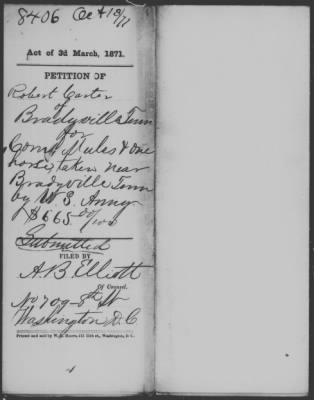 8406 Oct 18/71
Act of 3d March, 1871.
PETITION OF
Robert Carter
of
Bradyville Tenn
for
Corn, Mules & One
horse, taken near
Bradyville Tenn
by U.S. Army
$665 00/100
Submitted
FILED BY
A. B. Elliott
Of Counsel.
No 709-8th St
Washington D.C.
Printed and sold by W. H. Moore, 511 11th st., Washington, D. C.